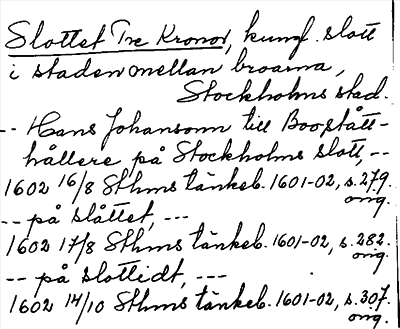 Slottet Tre Kronor, kungl. slott
i staden mellan broarna,
Stockholms stad.
-- Hans Johansonn till Boo stått-
hållere på Stockholms slott, --
1602 16/8 Sthms tänkeb. 1601-02, s. 279.
orig.
-- på slåttet, ---
1602 17/8 Sthms tänkeb. 1601-02, s. 282.
orig.
-- på slottidt, ---
1602 14/10 Sthms tänkeb. 1601-02, s. 307.
orig.